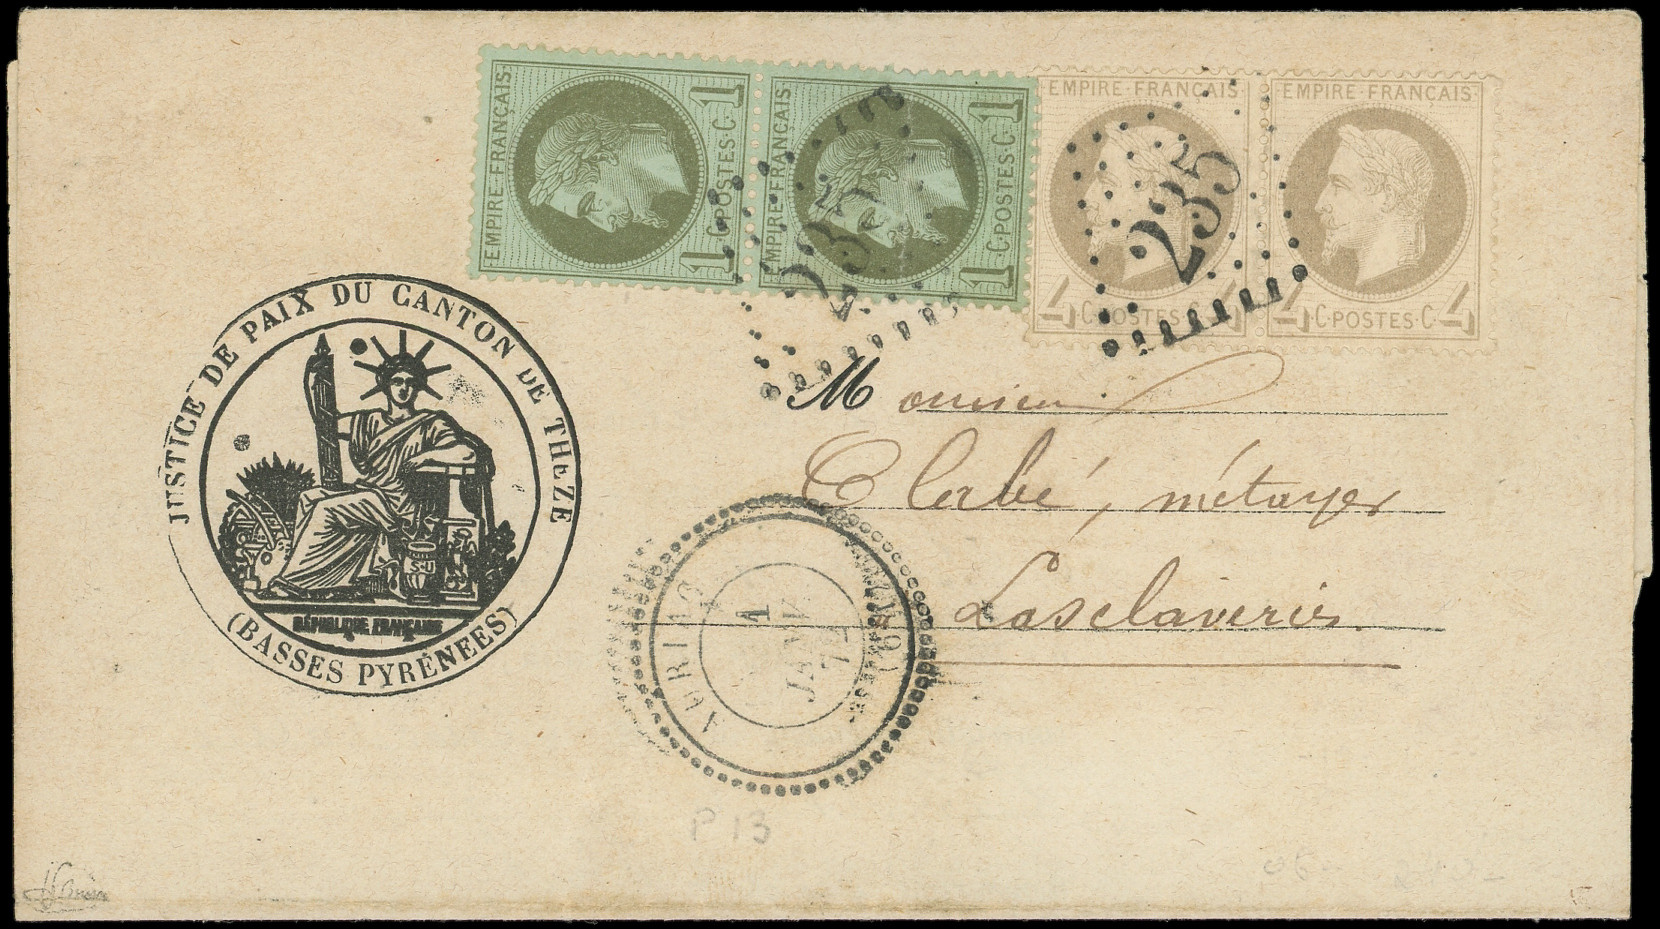 EMPIRE·FRANÇAIS
1·C·POSTES·C·1
EMPIRE·FRANÇAIS
1·C·POSTES·C·1
EMPIRE·FRANÇAIS
4·C·POSTES·C·4
EMPIRE FRANÇAIS
4·C·POSTES·C·4
235
235
JUSTICE DE PAIX DU CANTON DE THEZE
(BASSES PYRÉNÉES)
S·U
RÉPUBLIQUE FRANÇAISE
Monsieur
Clerbé, métayer
Lasclaveries
AURIAC
1
JANV
72
(64)
P 13